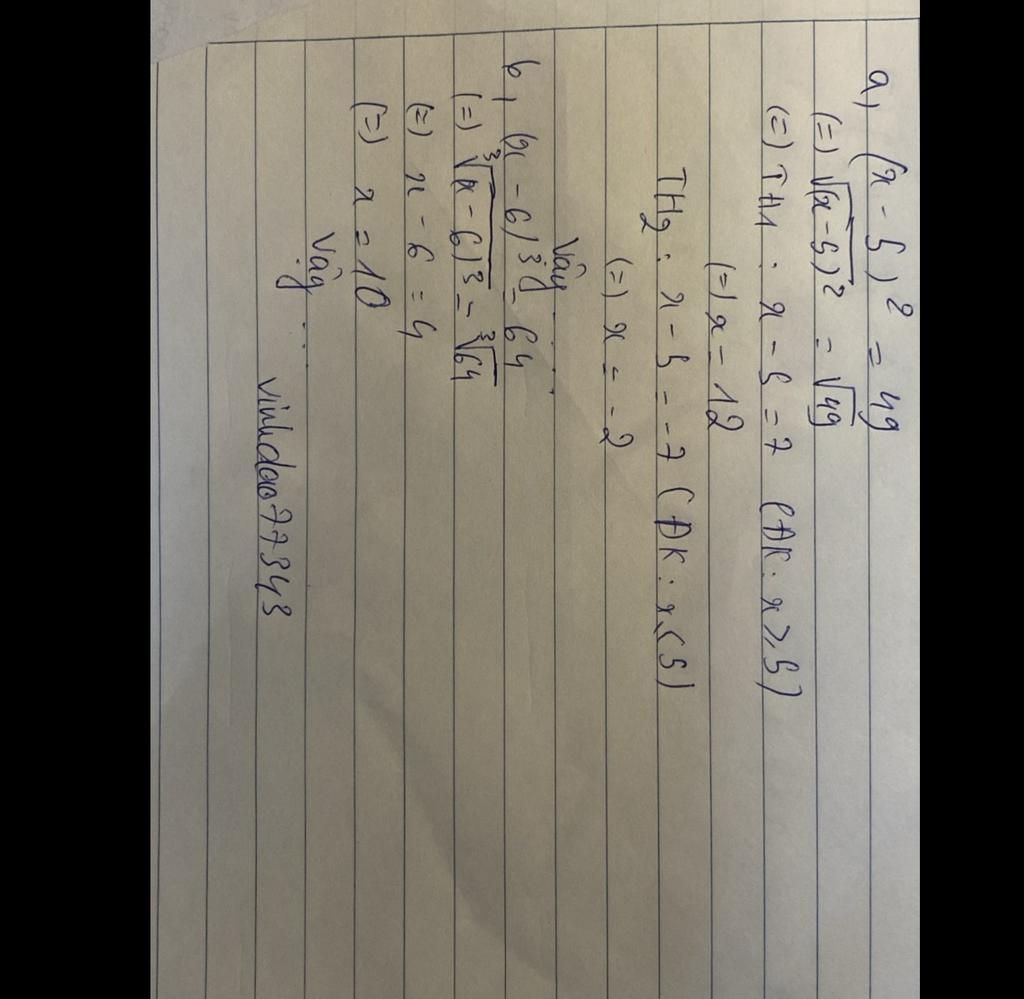 a, (x - 5)² = 49
(=) √(x-5)² = √49
(=) TH1 : x - 5 = 7 (ĐK: x ≥ 5)
(=) x = 12
TH2 : x - 5 = -7 (ĐK: x < 5)
(=) x = -2
Vậy ....
b, (x - 6)³ = 64
(=) ³√(x-6)³ = ³√64
(=) x - 6 = 4
(=) x = 10
Vậy ...
vinhdao77343